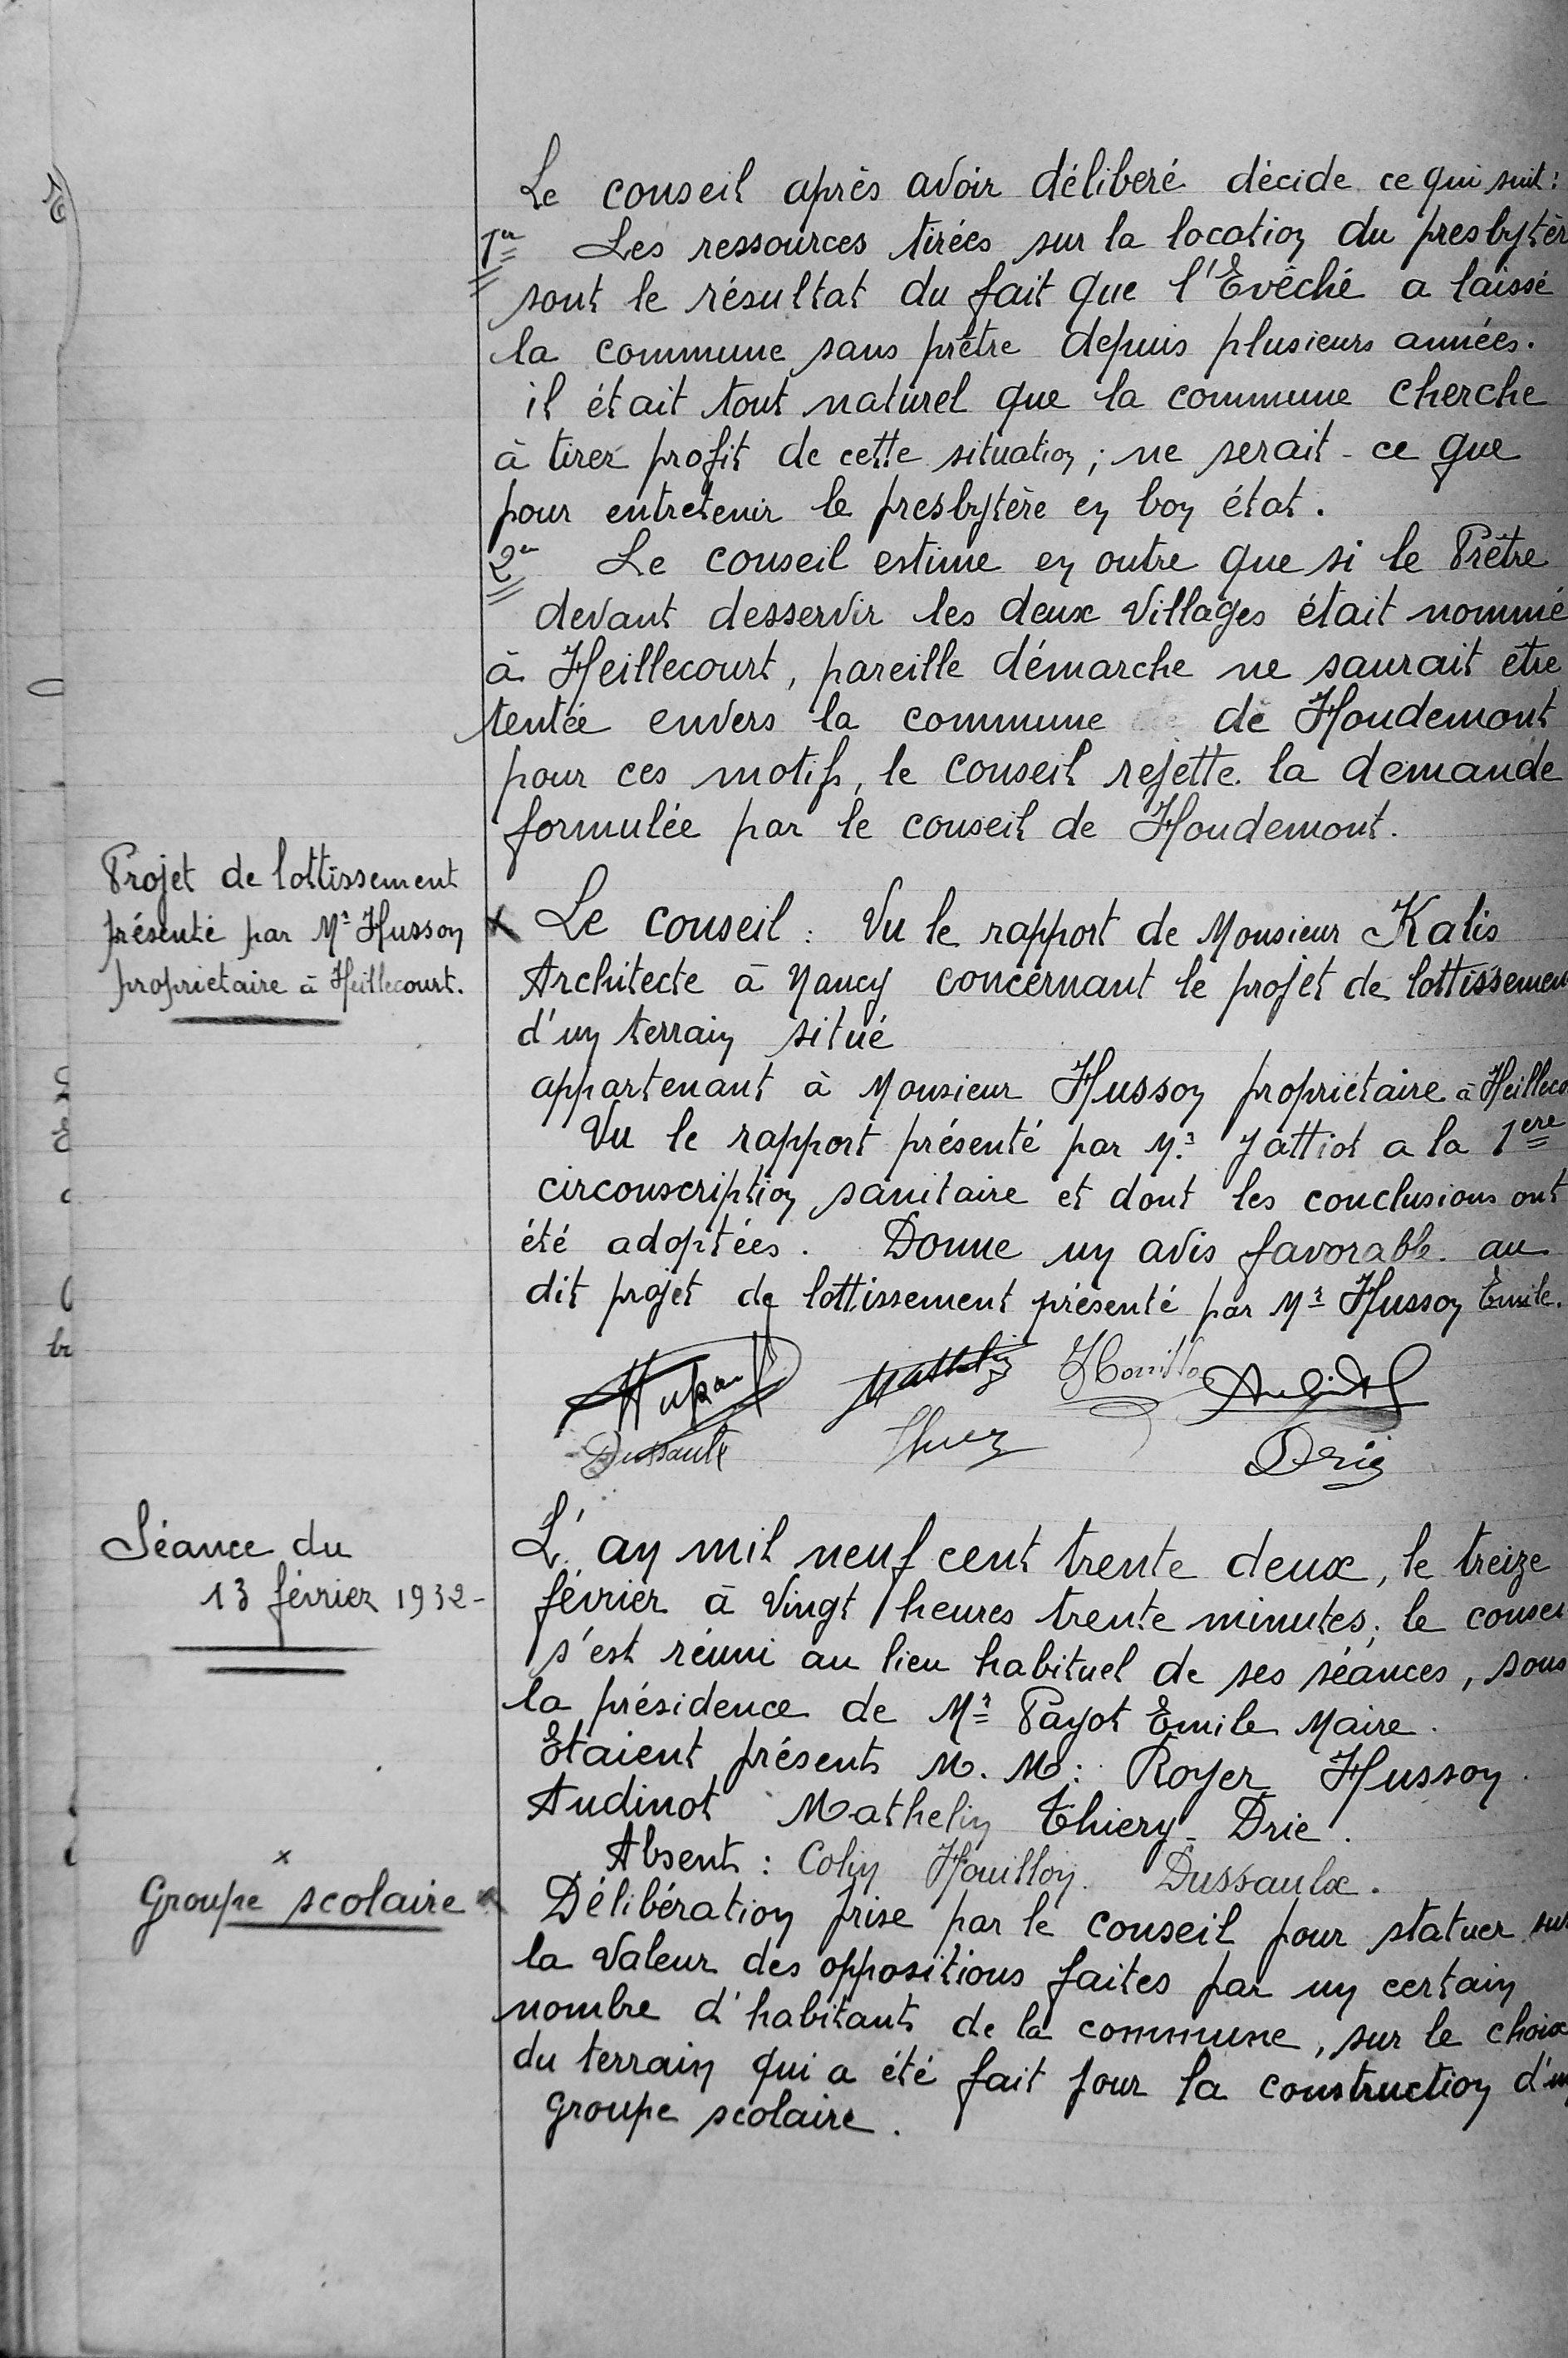 Le conseil après avoir déliberé décide ce qui suit :
1er Les ressources tirées sur la location du presbytèr
sont le résultat du fait que l'Evêché a laissé
la commune sans prêtre depuis plusieurs années.
il était tout naturel que la commune cherche
à tirer profit de cette situation ; ne serait-ce que
pour entretenir le presbytère en bon état.
2e Le conseil estime en outre que si le Prêtre
devant desservir les deux villages était nommé
à Heillecourt, pareille démarche ne saurait être
tentée envers la commune de Houdemont
pour ces motifs, le conseil rejette la demande
formulée par le conseil de Houdemont.
Projet de lottissement
présenté par Mr Husson
propriétaire à Heillecourt.
x Le conseil : Vu le rapport de Monsieur Kalis
Architecte à Nancy concernant le projet de lottissemen
d'un terrain situé
appartenant à Monsieur Husson propriétaire à Heilleco
Vu le rapport présenté par Mr Jattiot a la 1ere
circonscription sanitaire et dont les conclusions ont
été adoptées. Donne un avis favorable au
dit projet de lottissement présenté par Mr Husson Emile.
Mathelin Houillon
Dussaulx Drie
Séance du
13 février 1932-
L'an mil neuf cent trente deux, le treize
février à vingt heures trente minutes ; le consei
s'est réuni au lieu habituel de ses séances, sous
la présidence de Mr Payot Emile Maire.
Etaient présents M. M : Royer Husson.
Audinot Mathelin Thiery - Drie.
Absents : Colin Houillon. Dussaulx.
x
Groupe scolaire x
Délibération prise par le conseil pour statuer sur
la valeur des oppositions faites par un certain
nombre d'habitants de la commune, sur le choix
du terrain qui a été fait pour la construction d'un
groupe scolaire.